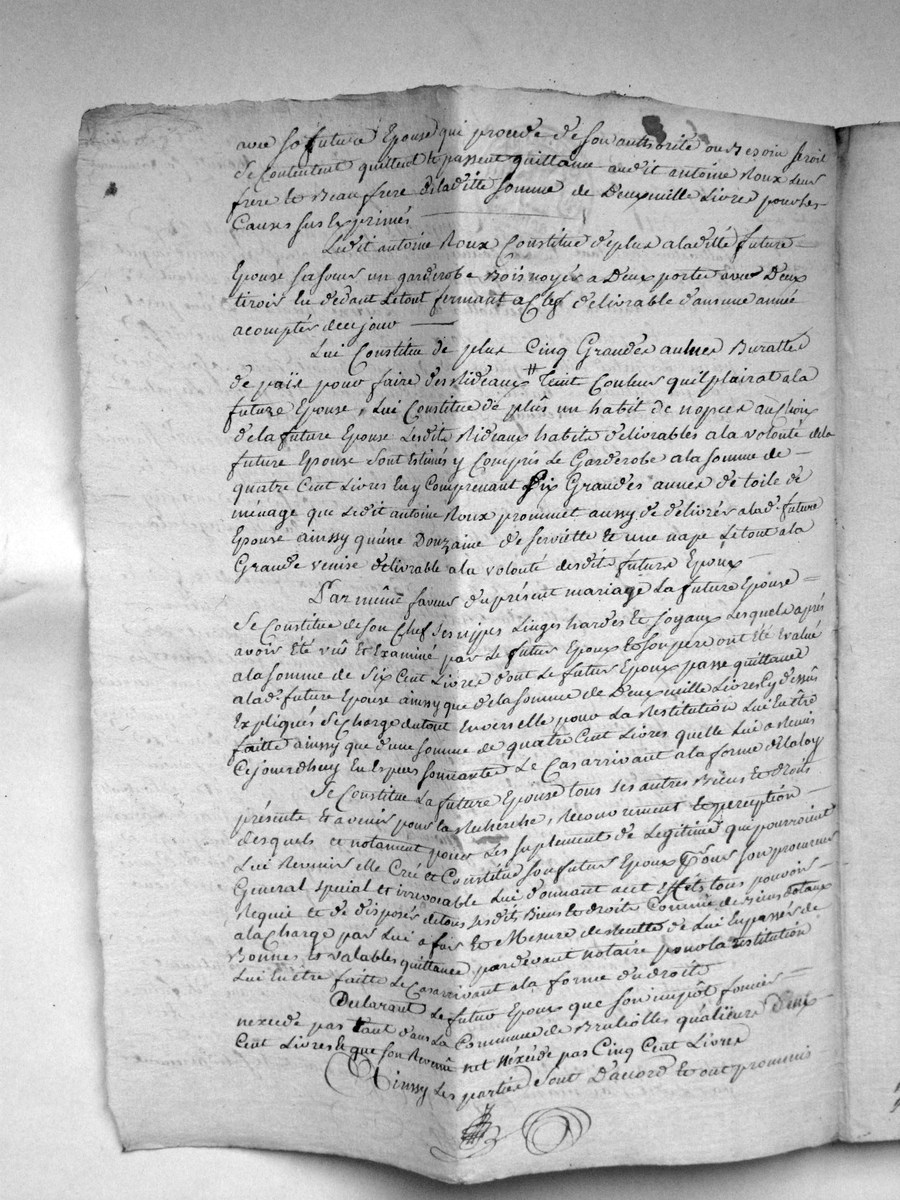 avec sa future Epouse qui procede de son authorité ou Besoin seroit
se contentent quittent et passent quittance audit antoine Roux Leur
frere et Beau frere de laditte somme de Deux mille Livres pour les
Causes sus Exprimés
Ledit antoine Roux Constitue de plus a laditte future
Epouse sa sœur un garderobe Bois noyés a Deux porte avec Deux
tiroir en dedant Le tout fermant a Clef délivrable dans une année
a comptér de ce jour
Lui Constitue de plus Cinq Grandes aulnes Buratte
de païs pour faire des Rideaux # Teint Couleur quil plairat a la
future Epouse, Lui Constitue de plus un habit de nopces au Choix
de la future Epouse Lesdits Rideaux habits délivrables a la volonté de la
future Epouse sont Estimés y Compris Le Garderobe a la somme de
quatre Cent Livres En y Comprenant Six Grandes aunes de toile de
ménage que Ledit antoine Roux prommet aussy de délivrér a lad.e future
Epouse ainssy qu'une Douzaine de serviette et une nape Le tout a la
Grande venise délivrable a la volonté desdits futurs Epoux
Par même faveur du présent mariage La future Epouse
Se Constitue de son Chef ses nippes Linges hardes et Joyaux Lesquels après
avoir été vûs et Examiné par Le futur Epoux et son pere ont été Evalué
a la somme de Six Cent Livres dont Le futur Epoux passe quittance
a lad.e future Epouse ainssy que de la somme de Deux mille Livres Cy dessûs
Expliqués se Charge du tout Envers elle pour La Restitution Lui En être
faitte ainssy que d'une somme de quatre Cent Livres quelle Lui a Remis
Cejourdhuy En Espèces sonnantes Le Cas arrivant a la forme de la loy
Se Constitue La future Epouse tous ses autres Biens et droits
présents et avenir pour la Recherche, Recouvrement et perception
desquels et notament pour Les suplement de Légitime que pourroient
Lui Revenir elle Créé et Constitue son futur Epoux pour son procureur
Général spécial et irrevocable Lui donnant a cet Effets tous pouvoir
Requis et de disposér de tous sesdits Biens et droits Comme de Biens dotaux
a la Charge par Lui a fur et Mesure des Recette de Lui En passér de
Bonnes, et valables quittance pardevant notaire pour la restitution
Lui En être faitte Le Cas arrivant a la forme du droits
Déclarant Le futur Epoux que son impôt foncier
nexcède pas tant dans La Commune de Brulliolles qu'alieurs Deux
Cent Livres et que son Revenu net nexcède pas Cinq Cent Livres
Ainssy Les parties sont D'accord et ont prommis